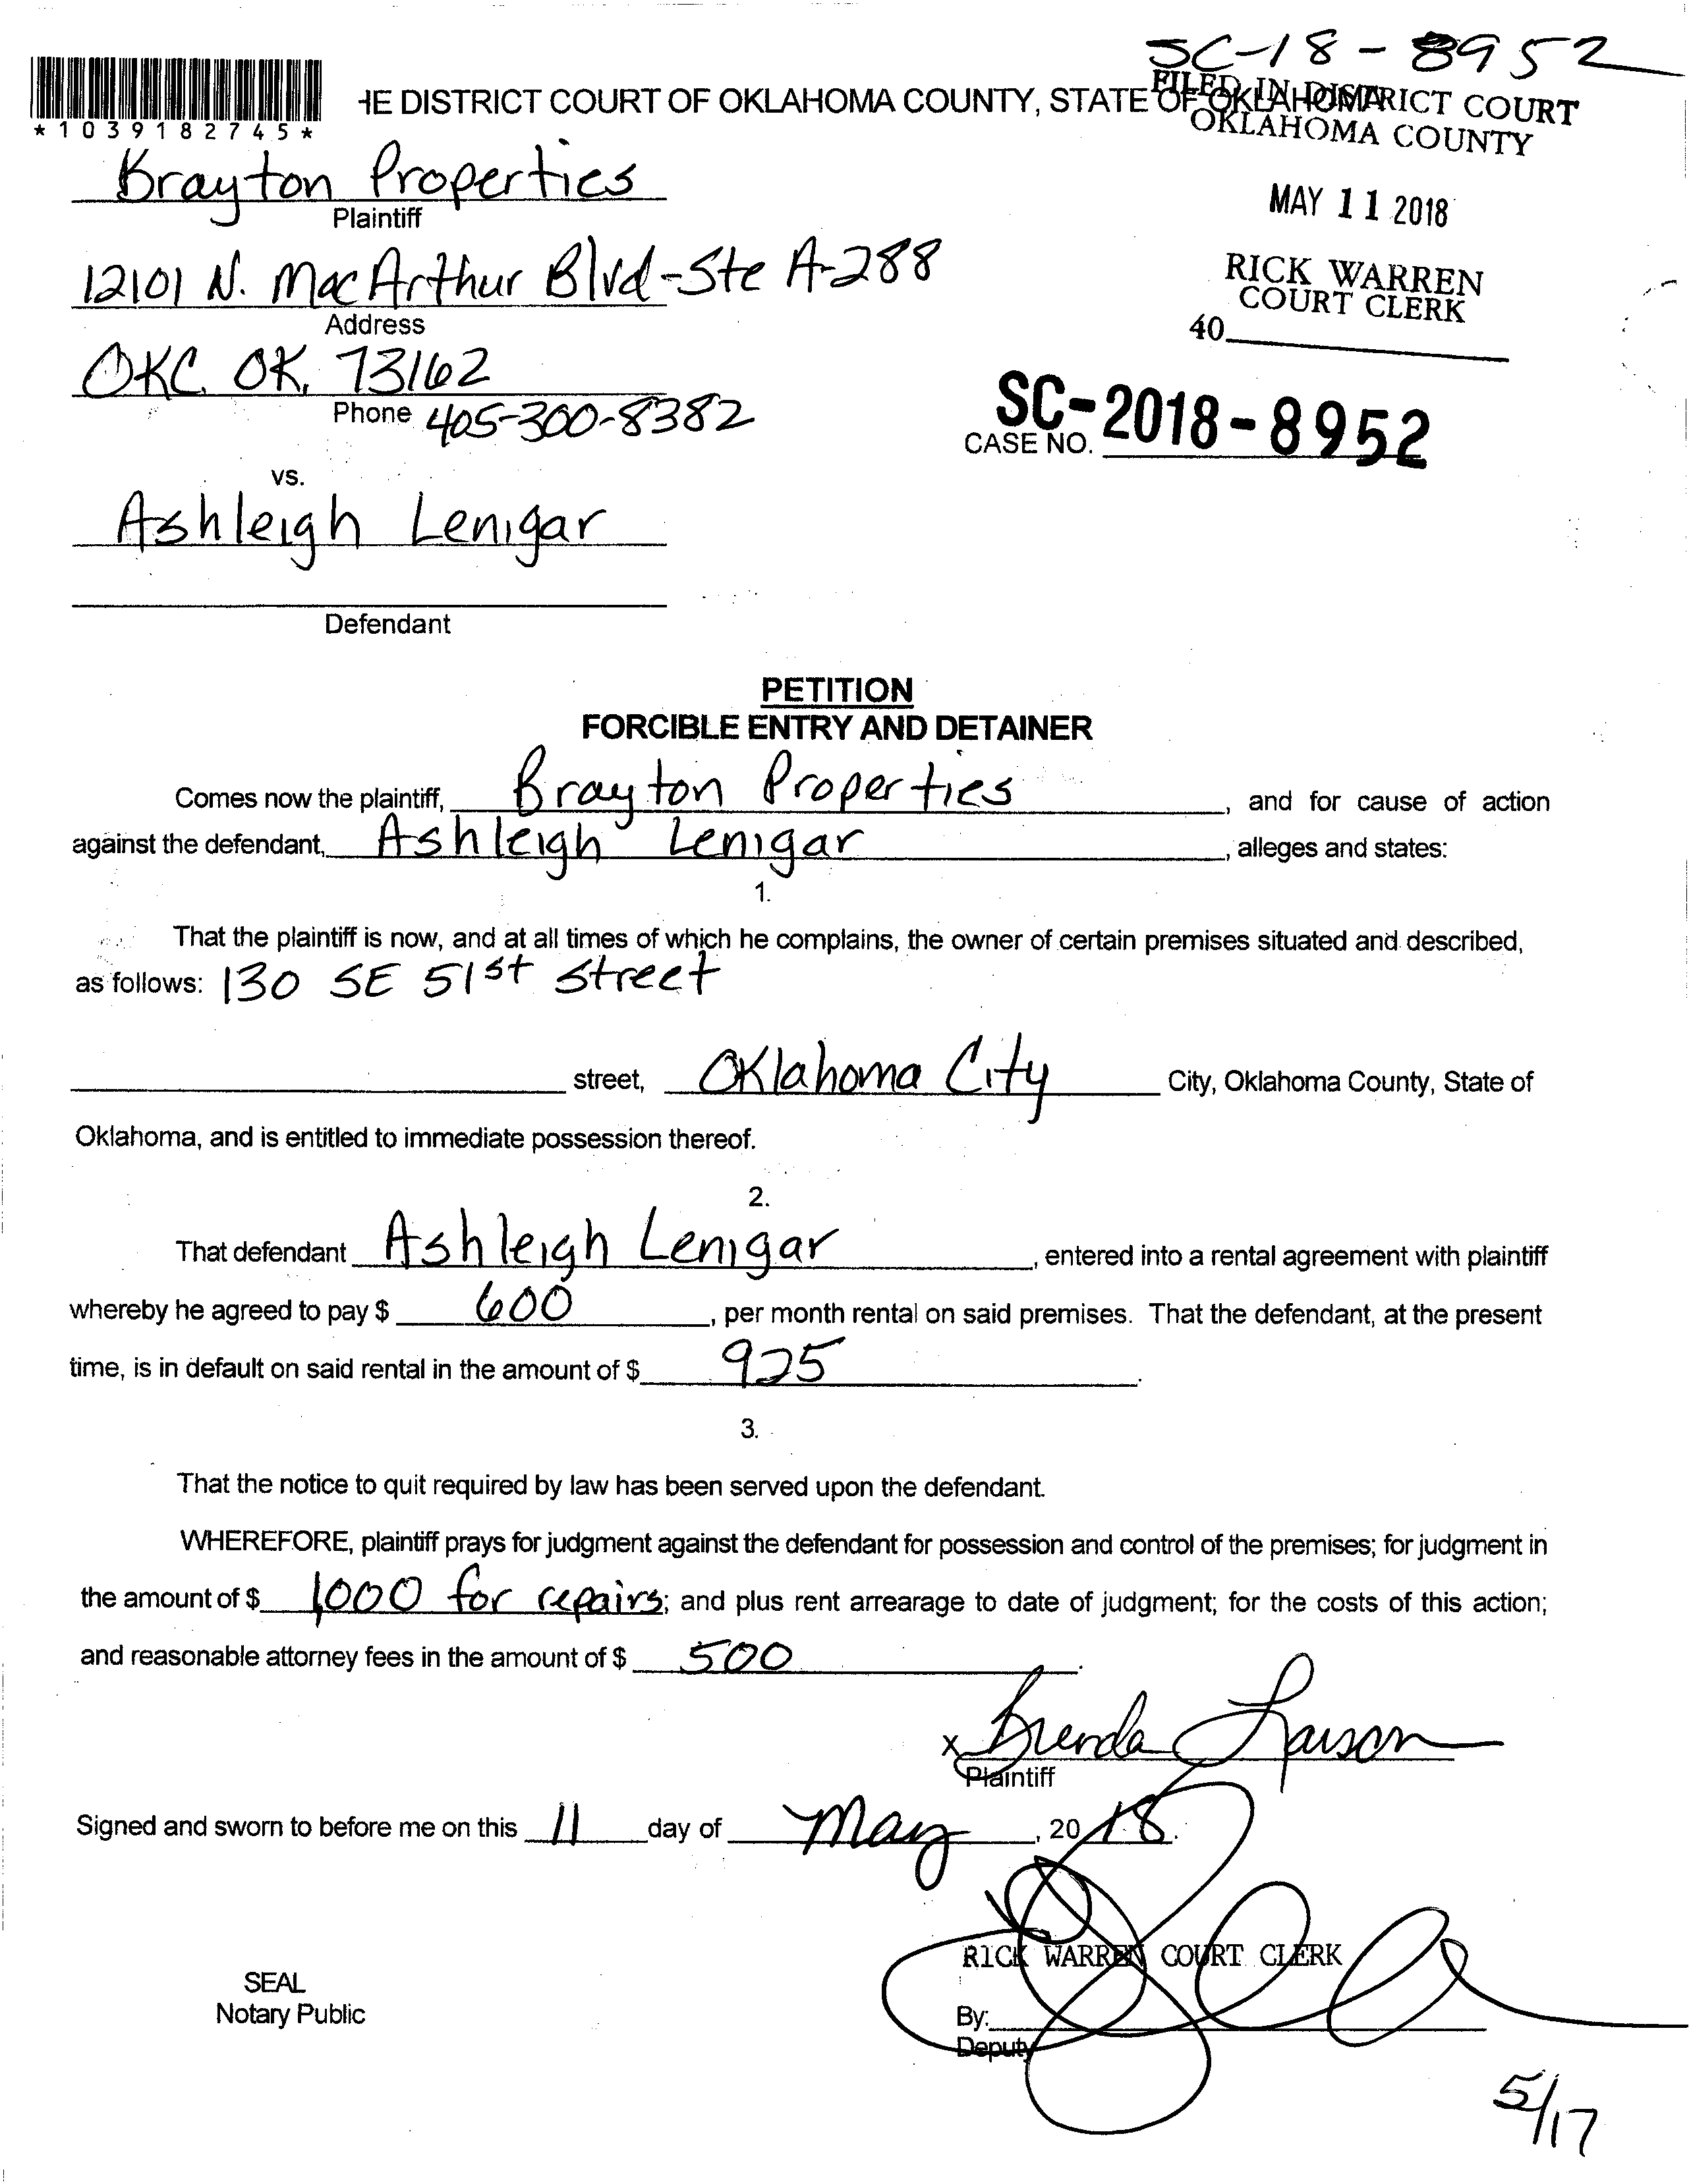 SC-18-8952
HE DISTRICT COURT OF OKLAHOMA COUNTY, STATE OF OKLAHOMA
FILED IN DISTRICT COURT
OKLAHOMA COUNTY
*1039182745*
Brayton Properties
Plaintiff
MAY 11 2018
12101 N. MacArthur Blvd-Ste A-288
Address
RICK WARREN
COURT CLERK
40
OKC, OK, 73162
Phone 405-300-8382
SC-2018-8952
CASE NO.
vs.
Ashleigh Lenigar
Defendant
PETITION
FORCIBLE ENTRY AND DETAINER
Comes now the plaintiff, Brayton Properties, and for cause of action
against the defendant, Ashleigh Lenigar, alleges and states:
1.
That the plaintiff is now, and at all times of which he complains, the owner of certain premises situated and described,
as follows: 130 SE 51st Street
street, Oklahoma City City, Oklahoma County, State of
Oklahoma, and is entitled to immediate possession thereof.
2.
That defendant Ashleigh Lenigar, entered into a rental agreement with plaintiff
whereby he agreed to pay $ 600, per month rental on said premises. That the defendant, at the present
time, is in default on said rental in the amount of $ 925.
3.
That the notice to quit required by law has been served upon the defendant.
WHEREFORE, plaintiff prays for judgment against the defendant for possession and control of the premises; for judgment in
the amount of $ 1,000 for repairs; and plus rent arrearage to date of judgment; for the costs of this action;
and reasonable attorney fees in the amount of $ 500.
x Brenda Larson
Plaintiff
Signed and sworn to before me on this 11 day of May, 2018.
RICK WARREN COURT CLERK
SEAL
Notary Public
By:
Deputy
5/17